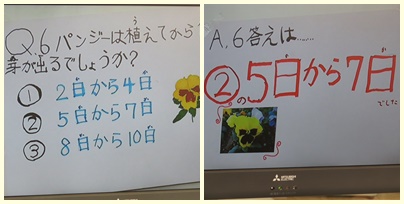 Q6パンジーは植えてから
う
芽が出るでしょうか?
① 2日から4日
② 5日から7日
③ 8日から10日
A,6答えは……
②の5日から7日
でした
MITSUBISHI